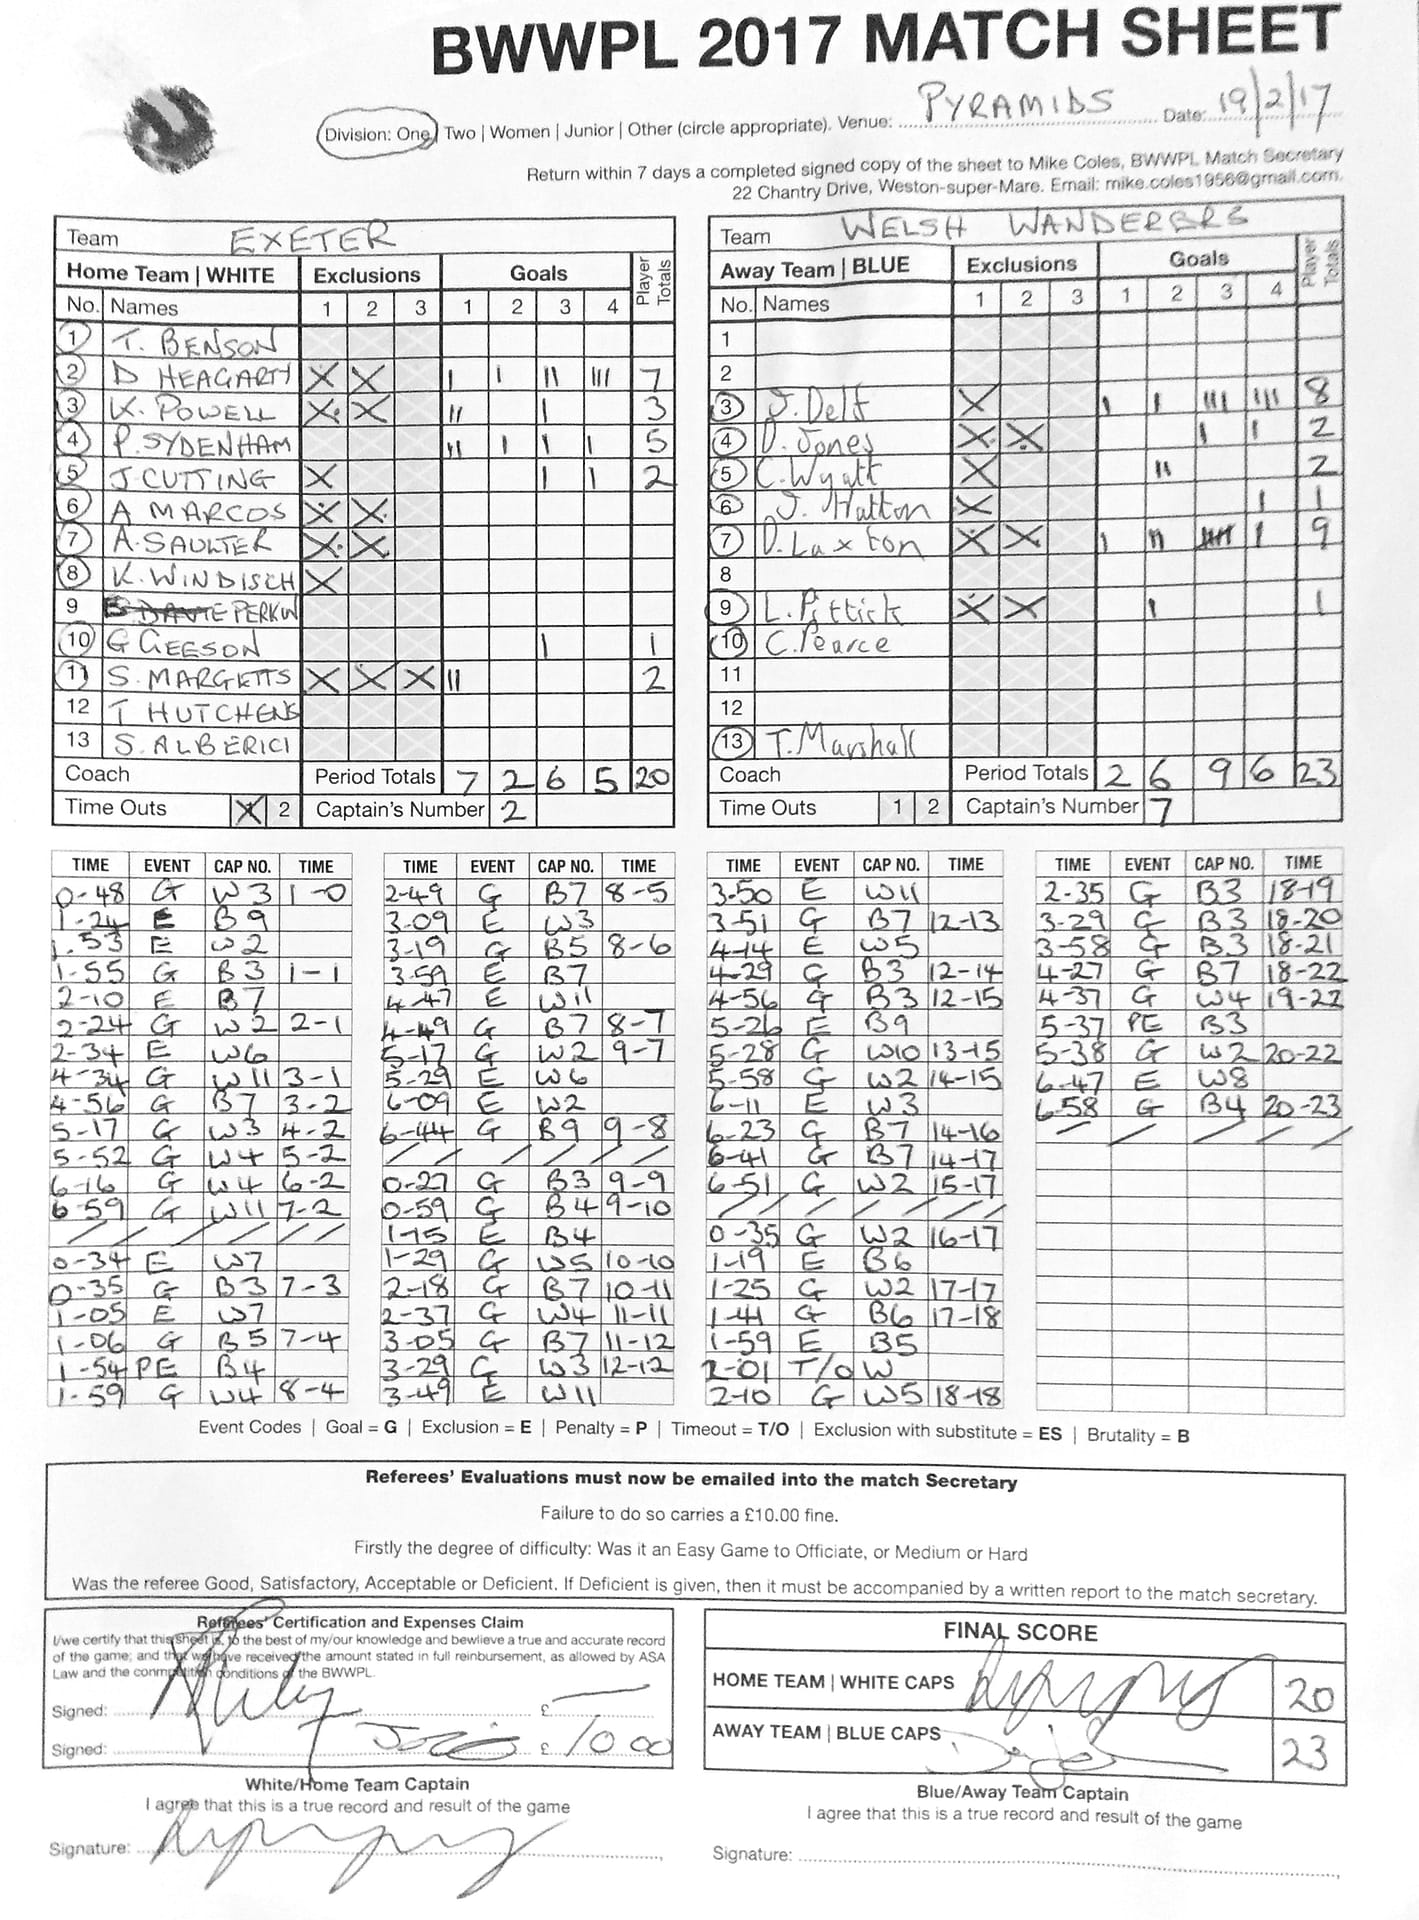 BWWPL 2017 MATCH SHEET
Division: One | Two | Women | Junior | Other (circle appropriate). Venue: PYRAMIDS Date: 19/2/17
Return within 7 days a completed signed copy of the sheet to Mike Coles, BWWPL Match Secretary
22 Chantry Drive, Weston-super-Mare. Email: mike.coles1956@gmail.com.
Team EXETER
Home Team | WHITE Exclusions Goals Player Totals
No. Names 1 2 3 1 2 3 4
1 T. BENSON
2 D HEAGARTY X X I I II III 7
3 K. POWELL X X II I 3
4 P. SYDENHAM II I I I 5
5 J CUTTING X I I 2
6 A MARCOS X X
7 A. SAULTER X X
8 K. WINDISCH X
9 PERKIN
10 G GEESON I 1
11 S. MARGETTS X X X II 2
12 T HUTCHENS
13 S. ALBERICI
Coach Period Totals 7 2 6 5 20
Time Outs X 2 Captain's Number 2
Team WELSH WANDERERS
Away Team | BLUE Exclusions Goals Player Totals
No. Names 1 2 3 1 2 3 4
1
2
3 J. Delf X I I III III 8
4 D. Jones X X I I 2
5 C. Wyatt X II 2
6 J. Hatton X I 1
7 D. Laxton X X I II IIIII I 9
8
9 L. Pittick X X I 1
10 C. Pearce
11
12
13 T. Marshall
Coach Period Totals 2 6 9 6 23
Time Outs 1 2 Captain's Number 7
TIME EVENT CAP NO. TIME
0-48 G W3 1-0
1-24 E B9
1.53 E W2
1-55 G B3 1-1
2-10 E B7
2-24 G W2 2-1
2-34 E W6
4-34 G W11 3-1
4-56 G B7 3-2
5-17 G W3 4-2
5-52 G W4 5-2
6-16 G W4 6-2
6-59 G W11 7-2
/ / / / / /
0-34 E W7
0-35 G B3 7-3
1-05 E W7
1-06 G B5 7-4
1-54 PE B4
1-59 G W4 8-4
TIME EVENT CAP NO. TIME
2-49 G B7 8-5
3-09 E W3
3-19 G B5 8-6
3-59 E B7
4-47 E W11
4-49 G B7 8-7
5-17 G W2 9-7
5-29 E W6
6-09 E W2
6-44 G B9 9-8
/ / / / / /
0-27 G B3 9-9
0-59 G B4 9-10
1-15 E B4
1-29 G W5 10-10
2-18 G B7 10-11
2-37 G W4 11-11
3-05 G B7 11-12
3-29 G W3 12-12
3-49 E W11
TIME EVENT CAP NO. TIME
3-50 E W11
3-51 G B7 12-13
4-14 E W5
4-29 G B3 12-14
4-56 G B3 12-15
5-26 E B9
5-28 G W10 13-15
5-58 G W2 14-15
6-11 E W3
6-23 G B7 14-16
6-41 G B7 14-17
6-51 G W2 15-17
/ / / / / / /
0-35 G W2 16-17
1-19 E B6
1-25 G W2 17-17
1-41 G B6 17-18
1-59 E B5
2-01 T/O W
2-10 G W5 18-18
TIME EVENT CAP NO. TIME
2-35 G B3 18-19
3-29 G B3 18-20
3-58 G B3 18-21
4-27 G B7 18-22
4-37 G W4 19-22
5-37 PE B3
5-38 G W2 20-22
6-47 E W8
6-58 G B4 20-23
/ / / / /
Event Codes | Goal = G | Exclusion = E | Penalty = P | Timeout = T/O | Exclusion with substitute = ES | Brutality = B
Referees' Evaluations must now be emailed into the match Secretary
Failure to do so carries a £10.00 fine.
Firstly the degree of difficulty: Was it an Easy Game to Officiate, or Medium or Hard
Was the referee Good, Satisfactory, Acceptable or Deficient. If Deficient is given, then it must be accompanied by a written report to the match secretary.
Referees' Certification and Expenses Claim
I/we certify that this sheet is, to the best of my/our knowledge and bewlieve a true and accurate record
of the game; and that we have received the amount stated in full reinbursement, as allowed by ASA
Law and the conmpetition conditions of the BWWPL.
Signed: £ —
Signed: £ 10 00
White/Home Team Captain
I agree that this is a true record and result of the game
Signature:
FINAL SCORE
HOME TEAM | WHITE CAPS 20
AWAY TEAM | BLUE CAPS 23
Blue/Away Team Captain
I agree that this is a true record and result of the game
Signature: